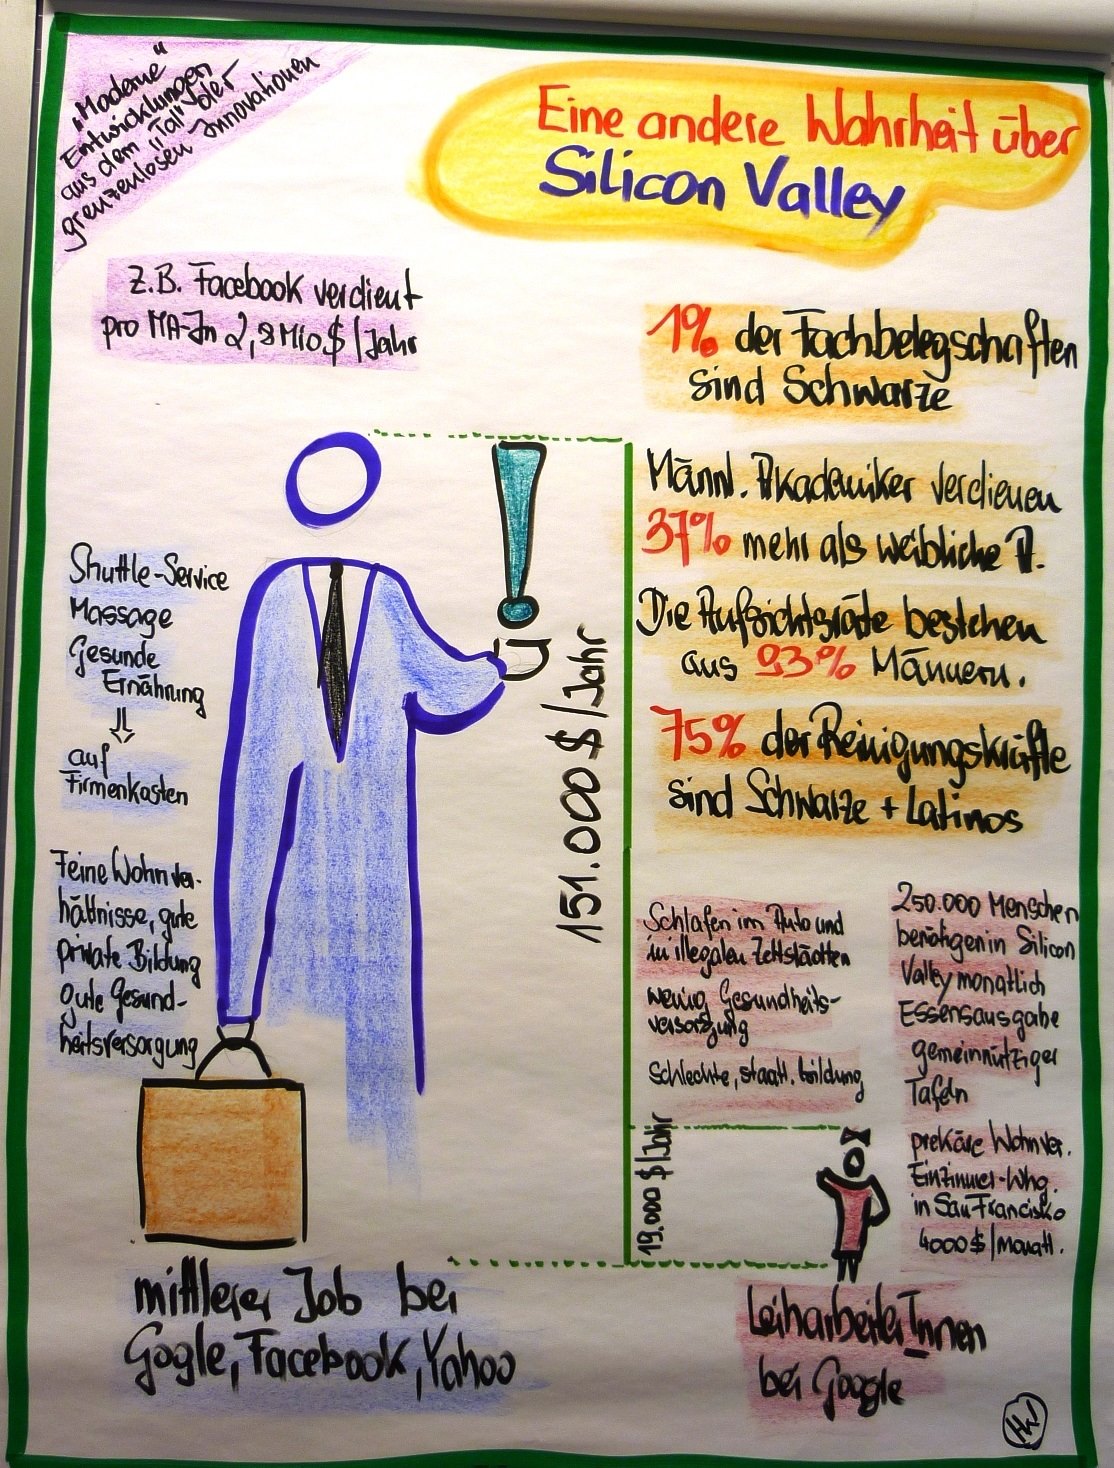 „Moderne"
Entwicklungen
aus dem "Tal der
grenzenlosen Innovationen
Eine andere Wahrheit über
Silicon Valley
z.B. Facebook verdient
pro MA-In 2,8 Mio $/Jahr
1% der Fachbelegschaften
sind Schwarze
Männl. Akademiker verdienen
37% mehr als weibliche A.
Die Aufsichtsräte bestehen
aus 93% Männern.
75% der Reinigungskräfte
sind Schwarze + Latinos
Shuttle-Service
Massage
Gesunde
Ernährung
⇓
auf
Firmenkosten
Feine Wohnver-
hältnisse, gute
private Bildung
gute Gesund-
heitsversorgung
151.000 $/Jahr
Schlafen im Auto und
in illegalen Zeltstädten
wenig Gesundheits-
versorgung
Schlechte, staatl. Bildung
250.000 Menschen
benötigen in Silicon
Valley monatlich
Essensausgabe
gemeinnütziger
Tafeln
prekäre Wohnver.
Einzimmer-Whg.
in San Francisko
4000$/Monatl.
19.000 $/Jahr
mittlerer Job bei
Gogle, Facebook, Yahoo
LeiharbeiterInnen
bei Google
HW